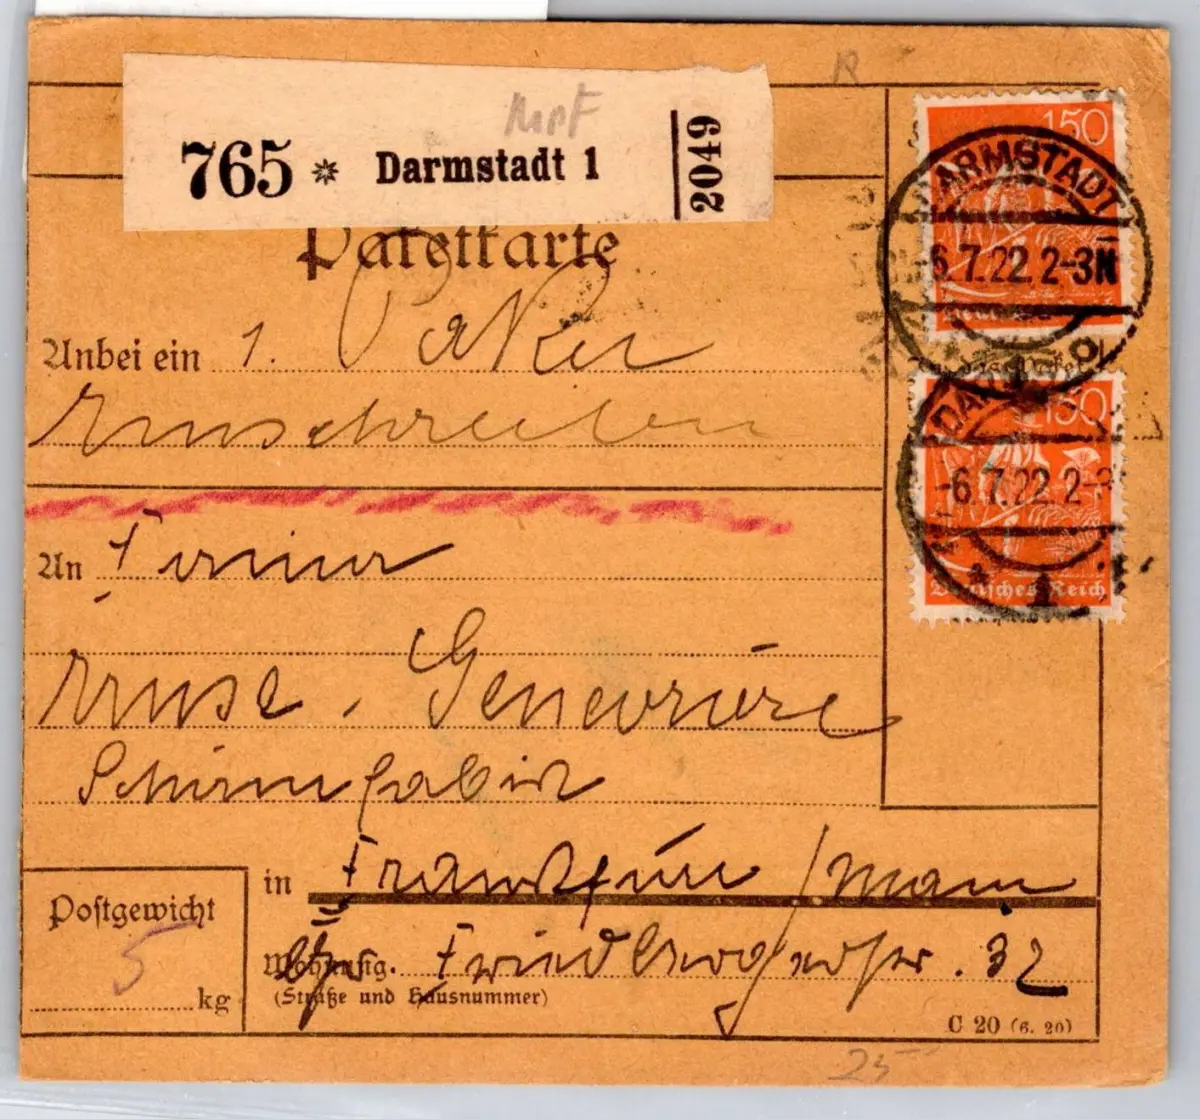 R
MeF
765 * Darmstadt 1
2049
Paketkarte
150
DARMSTADT
-6.7.22. 2-3N
1
Deutsches Reich
150
DARMSTADT
-6.7.22 2-3
* 1
Deutsches Reich
Anbei ein 1. Paket
Umschreiben
An Firma
Genevrière
Schirmfabrik
in Frankfurt / Main
Postgewicht
5 kg
Wohnung. Friedbergerstr. 32
(Straße und Hausnummer)
C 20 (6. 20)
25